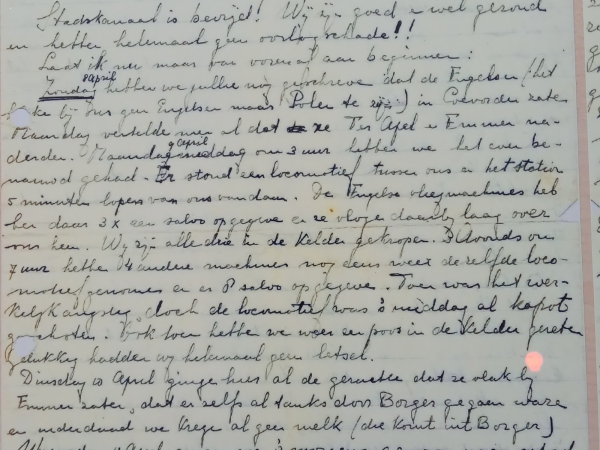 Stadskanaal is bevrijd! Wij zijn goed en wel gezond
en hebben helemaal geen oorlogsschade!!
Laat ik nu maar van voren af aan beginnen:
8 april
Zondag hebben we jullie nog geschreven dat de Engelsen (het
bij ons geen Engelsen maar Polen te zijn) in Coevorden zaten
Maandag vertelde men al dat ze Ter Apel en Emmen na-
9 april
derden. Maandagmiddag om 3 uur hebben we het even be-
nauwd gehad. Er stond een locomotief tussen ons en het station
5 minuten lopen van ons vandaan. De Engelse vliegmachines heb
ben daar 3 x een salvo op gegeven en ze vlogen daarbij laag over
ons heen. Wij zijn alle drie in de kelder gekropen. 's Avonds om
7 uur hebben 4 andere machines nog eens weer dezelfde loco-
motief genomen en er 8 salvo op gegeven. Toen was het wer-
kelijk angstig, doch de locomotief was 's middag al kapot
geschoten. Ook toen hebben we weer een poos in de kelder gezeten
Gelukkig hadden wij helemaal geen letsel.
Dinsdag 10 April ginge hier al de geruchte dat ze vlak bij
Emmen zaten, dat er zelfs al tanks door Borger gegaan ware
en inderdaad we krege al geen melk (die komt uit Borger)